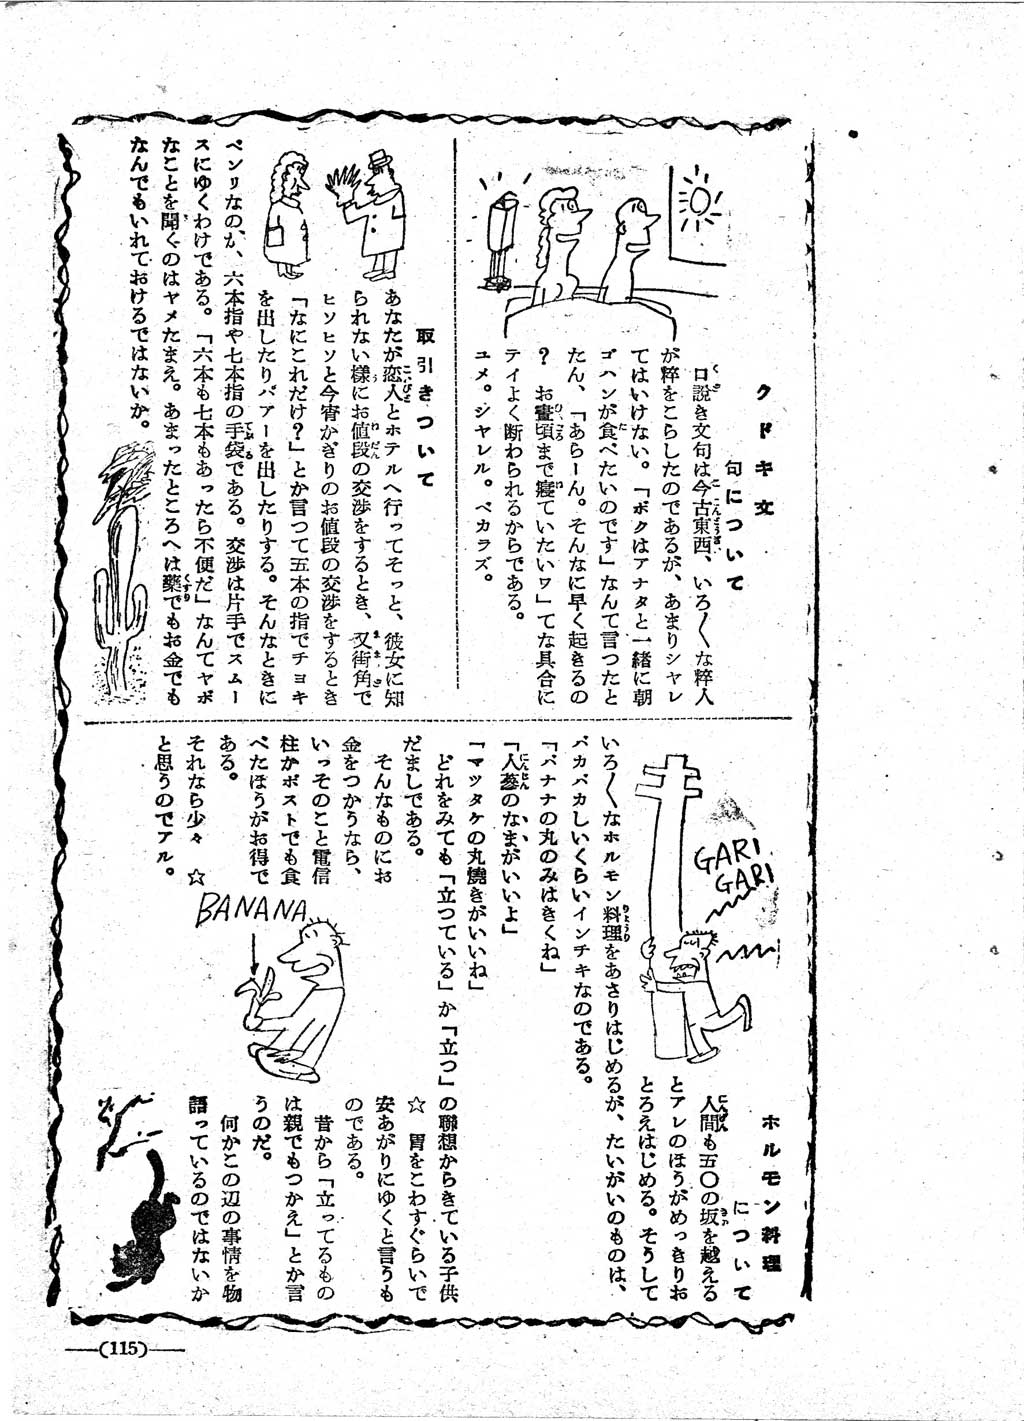 クドキ文
句について
口説き文句は今古東西、いろ〱な粋人
が粹をこらしたのであるが、あまりシャレ
てはいけない。「ボクはアナタと一緒に朝
ゴハンが食べたいのです」なんて言つたと
たん、「あらーん。そんなに早く起きるの
? お晝頃まで寢ていたいワ」てな具合に
テイよく断わられるからである。
ユメ。シャレル。ベカラズ。
取引きついて
あなたが恋人とホテルへ行ってそっと、彼女に知
られない様にお値段の交渉をするとき、又街角で
ヒソヒソと今宵かぎりのお値段の交渉をするとき
「なにこれだけ?」とか言つて五本の指でチョキ
を出したりパアーを出したりする。そんなときに
ベンリなのが、六本指や七本指の手袋である。交渉は片手でスムー
スにゆくわけである。「六本も七本もあったら不便だ」なんてヤボ
なことを聞くのはヤメたまえ。あまったところへは藥でもお金でも
なんでもいれておけるではないか。
ホルモン料理
について
人間も五〇の坂を越える
とアレのほうがめっきりお
とろえはじめる。そうして
いろ〱なホルモン料理をあさりはじめるが、たいがいのものは、
バカバカしいくらいインチキなのである。
「バナナの丸のみはきくね」
「人蔘のなまがいいよ」
「マツタケの丸燒きがいいね」
どれをみても「立つている」か「立つ」の聯想からきている子供
だましである。
そんなものにお
金をつかうなら、
いっそのこと電信
柱かポストでも食
べたほうがお得で
ある。
それなら少々 ☆
と思うのでアル。
☆ 胃をこわすぐらいで
安あがりにゆくと言うも
のである。
昔から「立ってるもの
は親でもつかえ」とか言
うのだ。
何かこの辺の事情を物
語っているのではないか
GARI
GARI
BANANA
(115)